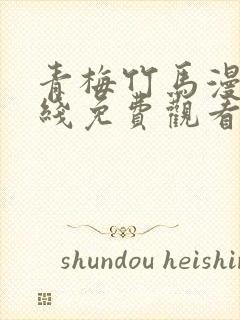 青梅竹馬漫
綫免費觀看
shundou heishin